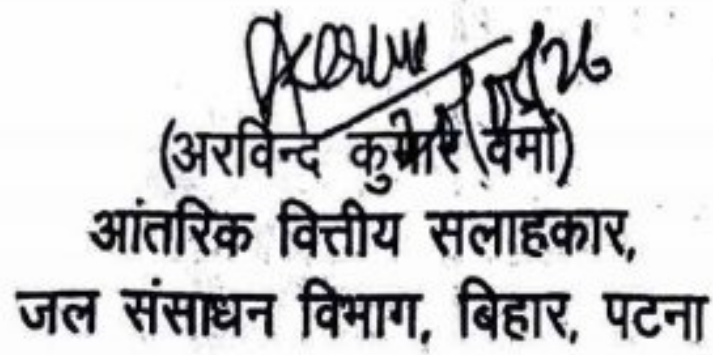 (अरविन्द कुमार वर्मा)
आंतरिक वित्तीय सलाहकार,
जल संसाधन विभाग, बिहार, पटना